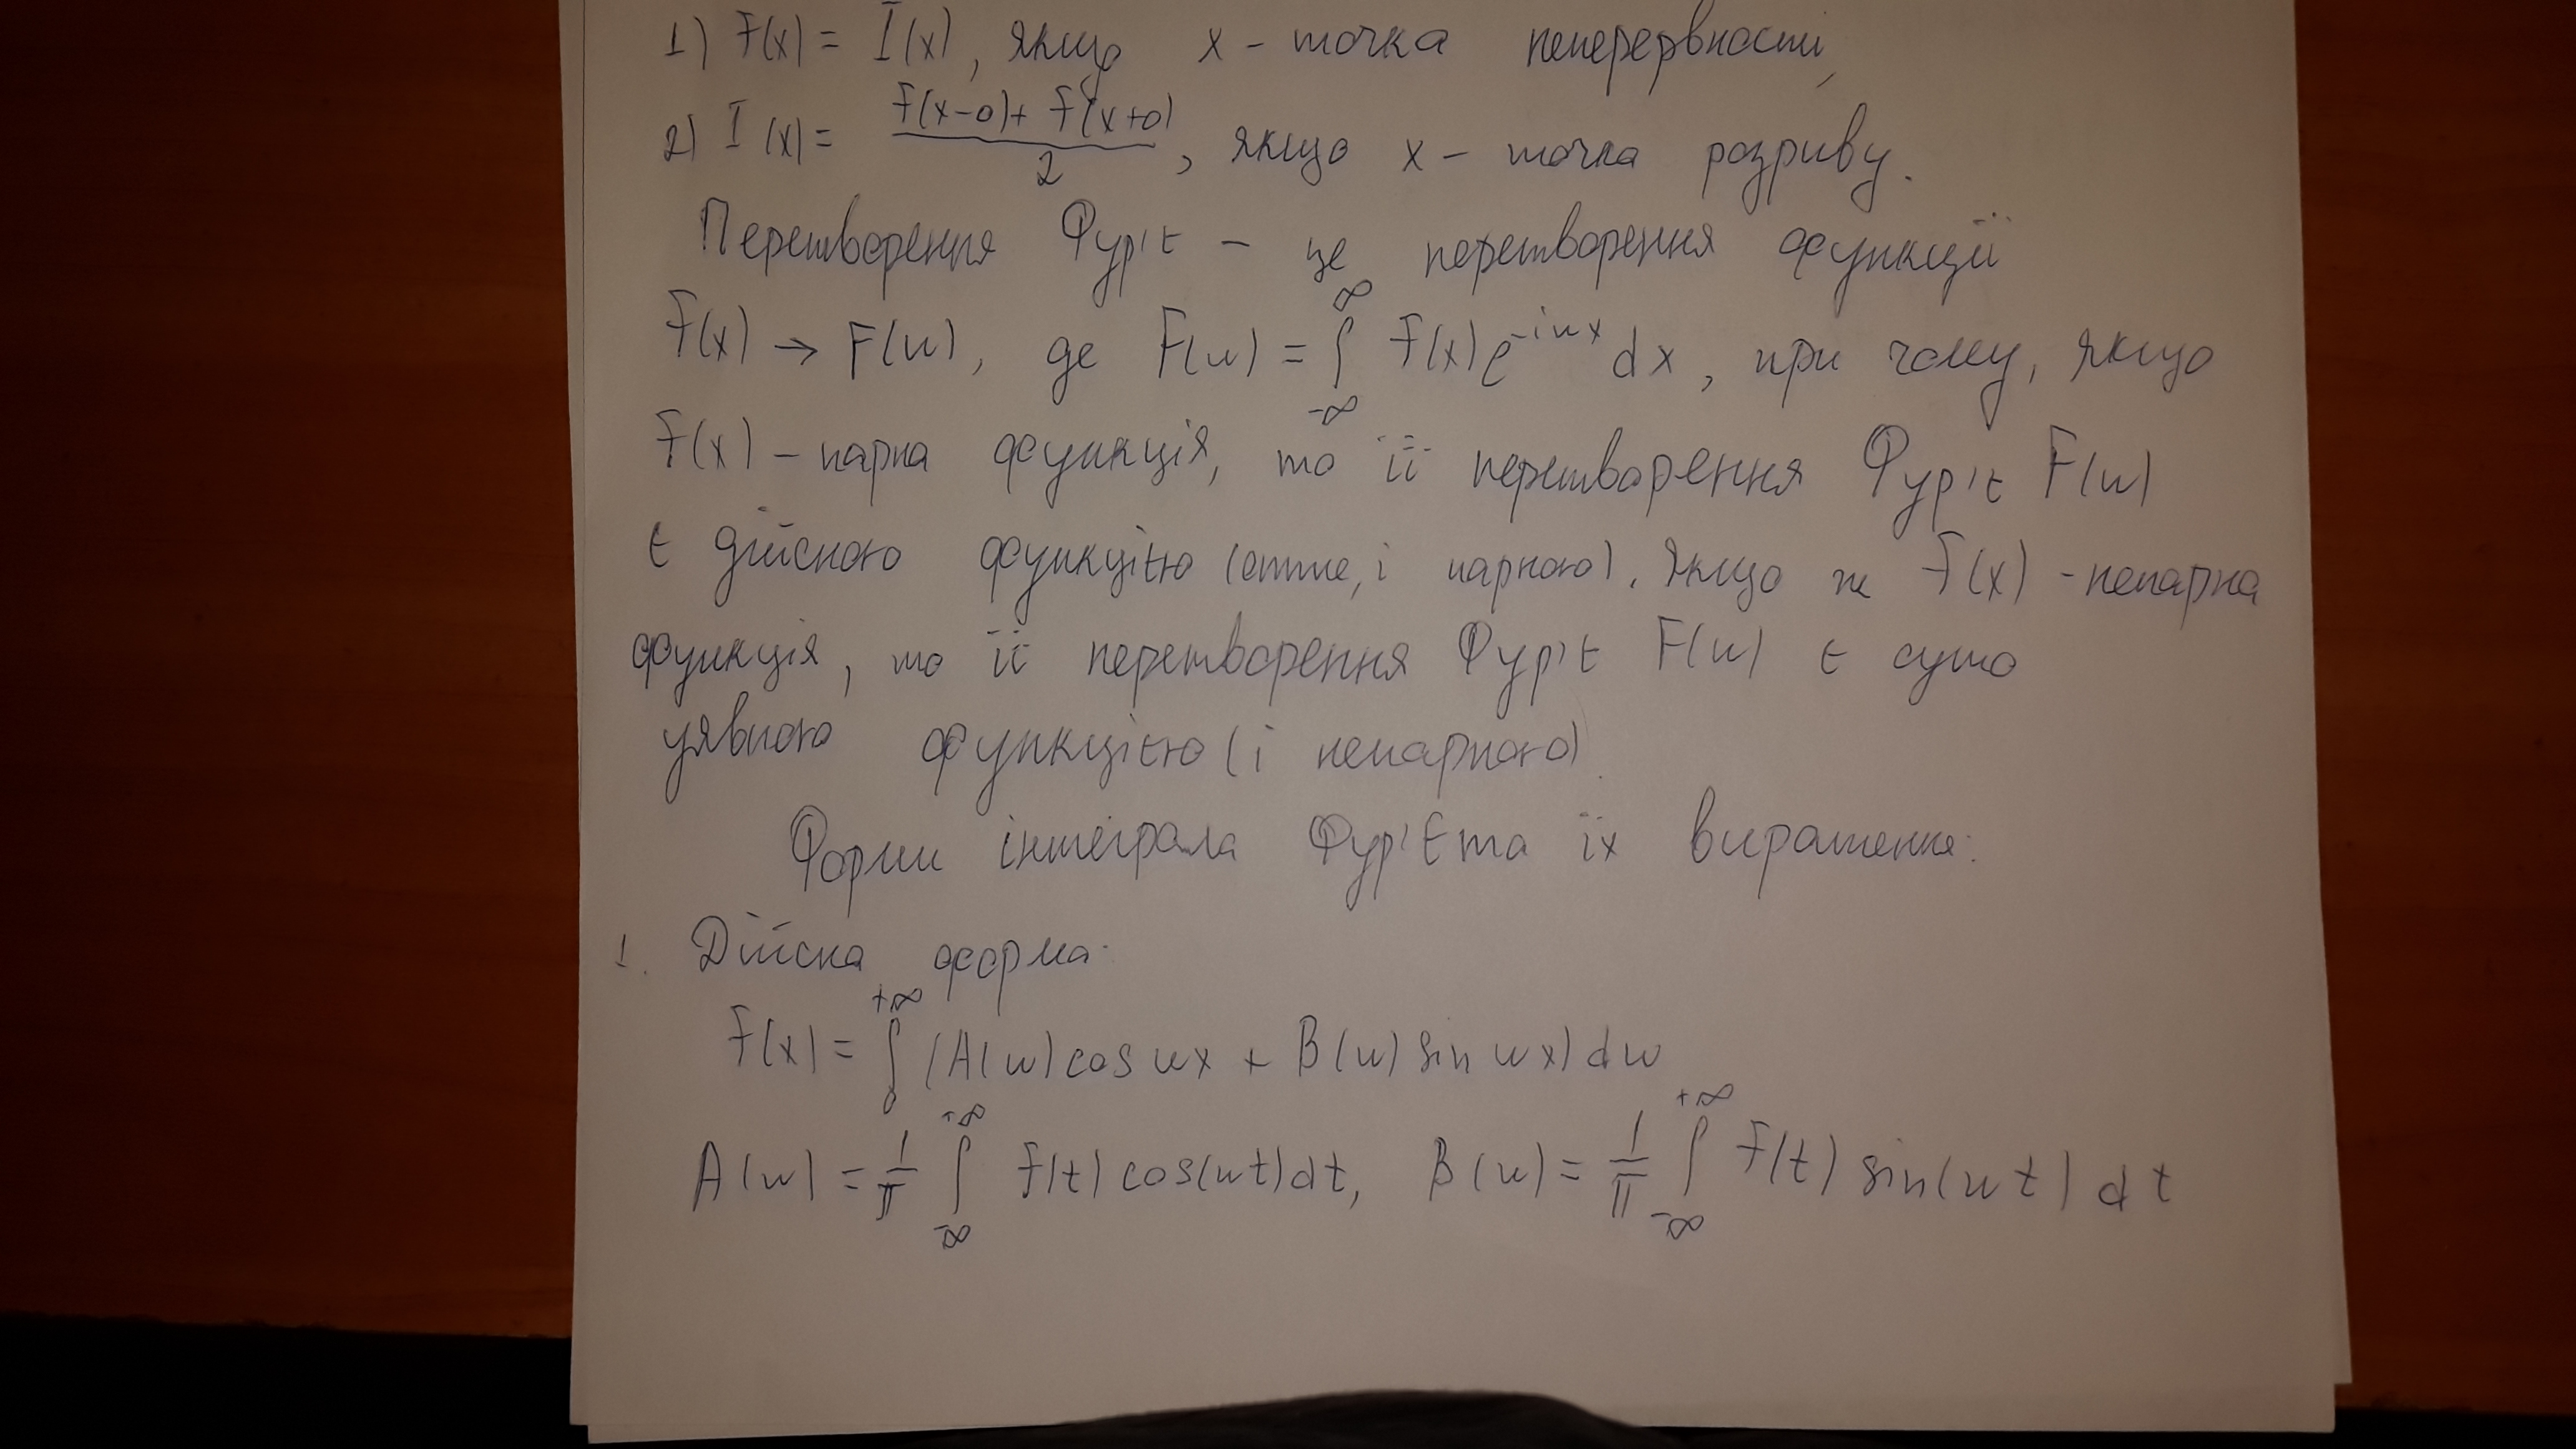 1) f(x) = I(x), якщо x - точка неперервності,
2) I(x) = (f(x-0) + f(x+0))/2, якщо x - точка розриву.
Перетворення Фур'є - це перетворення функції
f(x) → F(w), де F(w) = ∫_{-∞}^{∞} f(x) e^{-iwx} dx, при чому, якщо
f(x) - парна функція, то її перетворення Фур'є F(w)
є дійсною функцією (отже, і парною). Якщо ж f(x) - непарна
функція, то її перетворення Фур'є F(w) є суто
уявною функцією (і непарною)
Форми інтеграла Фур'є та їх вираження:
1. Дійсна форма:
f(x) = ∫_{0}^{+∞} (A(w) cos wx + B(w) sin wx) dw
A(w) = 1/π ∫_{-∞}^{+∞} f(t) cos(wt) dt, B(w) = 1/π ∫_{-∞}^{+∞} f(t) sin(wt) dt